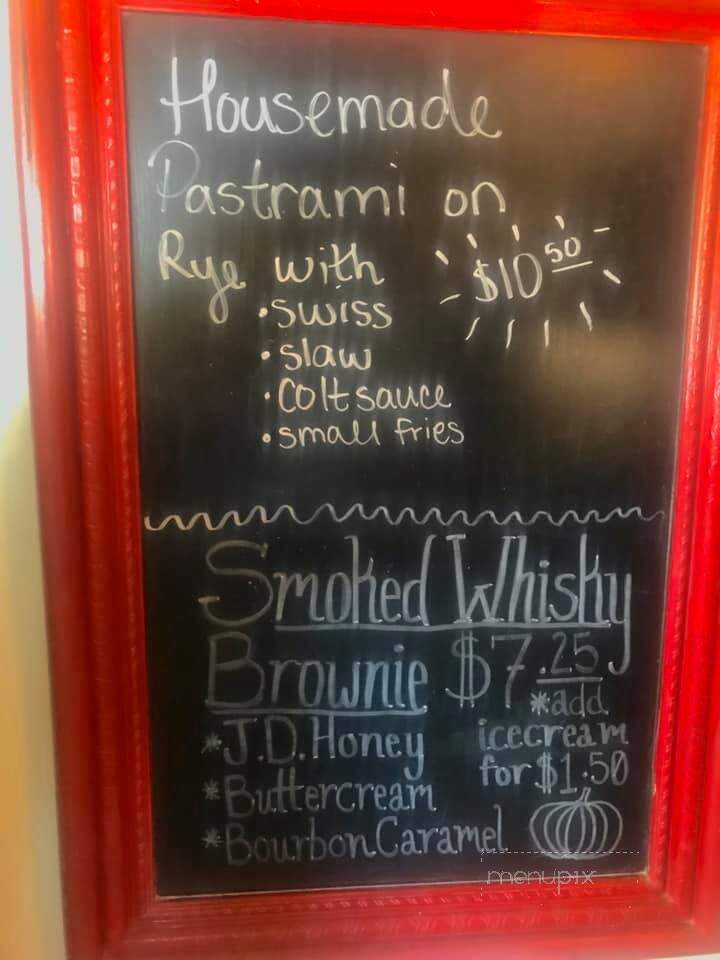 Housemade
Pastrami on
Rye with
$10 50
• swiss
• slaw
• Colt sauce
• small fries
Smoked Whisky
Brownie $7.25
*add
icecream
for $1.50
*J.D. Honey
*Buttercream
*Bourbon Caramel
menupix